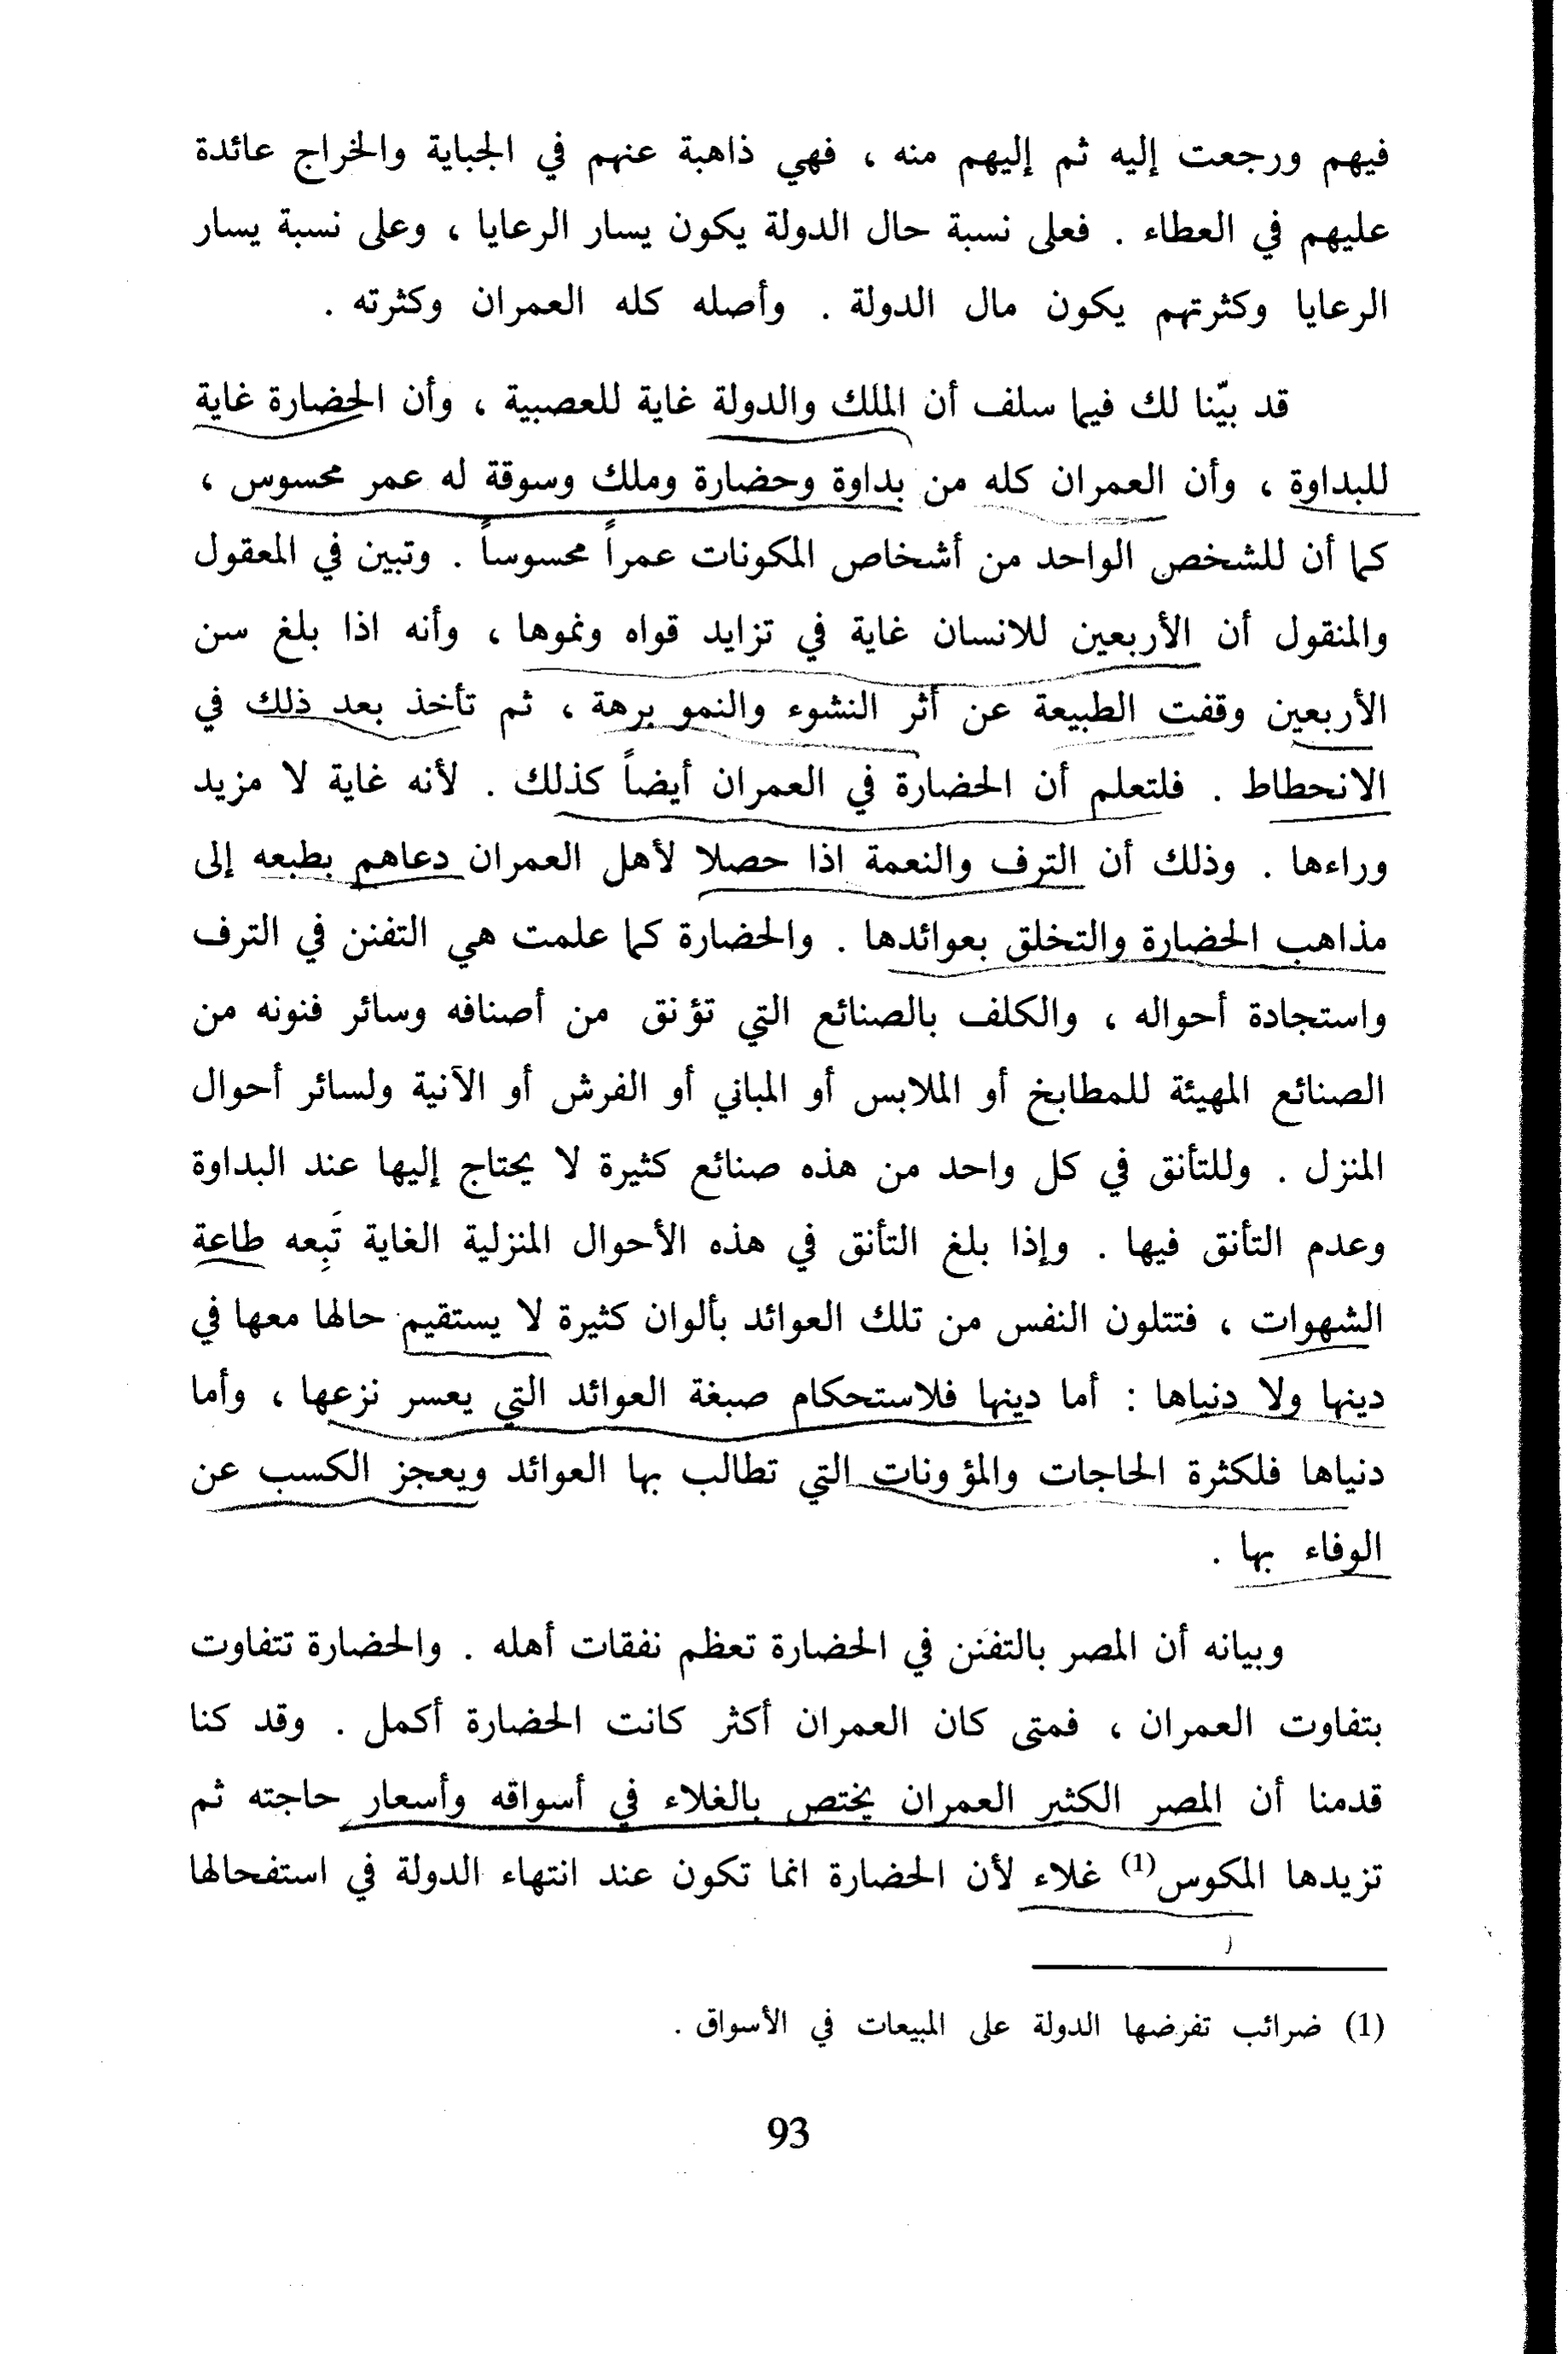 فيهم ورجعت إليه ثم إليهم منه ، فهي ذاهبة عنهم في الجباية والخراج عائدة
عليهم في العطاء . فعلى نسبة حال الدولة يكون يسار الرعايا ، وعلى نسبة يسار
الرعايا وكثرتهم يكون مال الدولة . وأصله كله العمران وكثرته .
قد بيّنا لك فيما سلف أن الملك والدولة غاية للعصبية ، وأن الحضارة غاية
للبداوة ، وأن العمران كله من بداوة وحضارة وملك وسوقة له عمر محسوس ،
كما أن للشخص الواحد من أشخاص المكونات عمراً محسوساً . وتبين في المعقول
والمنقول أن الأربعين للانسان غاية في تزايد قواه ونموها ، وأنه اذا بلغ سن
الأربعين وقفت الطبيعة عن أثر النشوء والنمو برهة ، ثم تأخذ بعد ذلك في
الانحطاط . فلتعلم أن الحضارة في العمران أيضاً كذلك . لأنه غاية لا مزيد
وراءها . وذلك أن الترف والنعمة اذا حصلا لأهل العمران دعاهم بطبعه إلى
مذاهب الحضارة والتخلق بعوائدها . والحضارة كما علمت هي التفنن في الترف
واستجادة أحواله ، والكلف بالصنائع التي تؤنق من أصنافه وسائر فنونه من
الصنائع المهيئة للمطابخ أو الملابس أو المباني أو الفرش أو الآنية ولسائر أحوال
المنزل . وللتأنق في كل واحد من هذه صنائع كثيرة لا يحتاج إليها عند البداوة
وعدم التأنق فيها . وإذا بلغ التأنق في هذه الأحوال المنزلية الغاية تَبِعه طاعة
الشهوات ، فتتلون النفس من تلك العوائد بألوان كثيرة لا يستقيم حالها معها في
دينها ولا دنياها : أما دينها فلاستحكام صبغة العوائد التي يعسر نزعها ، وأما
دنياها فلكثرة الحاجات والمؤونات التي تطالب بها العوائد ويعجز الكسب عن
الوفاء بها .
وبيانه أن المصر بالتفنن في الحضارة تعظم نفقات أهله . والحضارة تتفاوت
بتفاوت العمران ، فمتى كان العمران أكثر كانت الحضارة أكمل . وقد كنا
قدمنا أن المصر الكثير العمران يختص بالغلاء في أسواقه وأسعار حاجته ثم
تزيدها المكوس(1) غلاء لأن الحضارة انما تكون عند انتهاء الدولة في استفحالها
(1) ضرائب تفرضها الدولة على المبيعات في الأسواق .
93